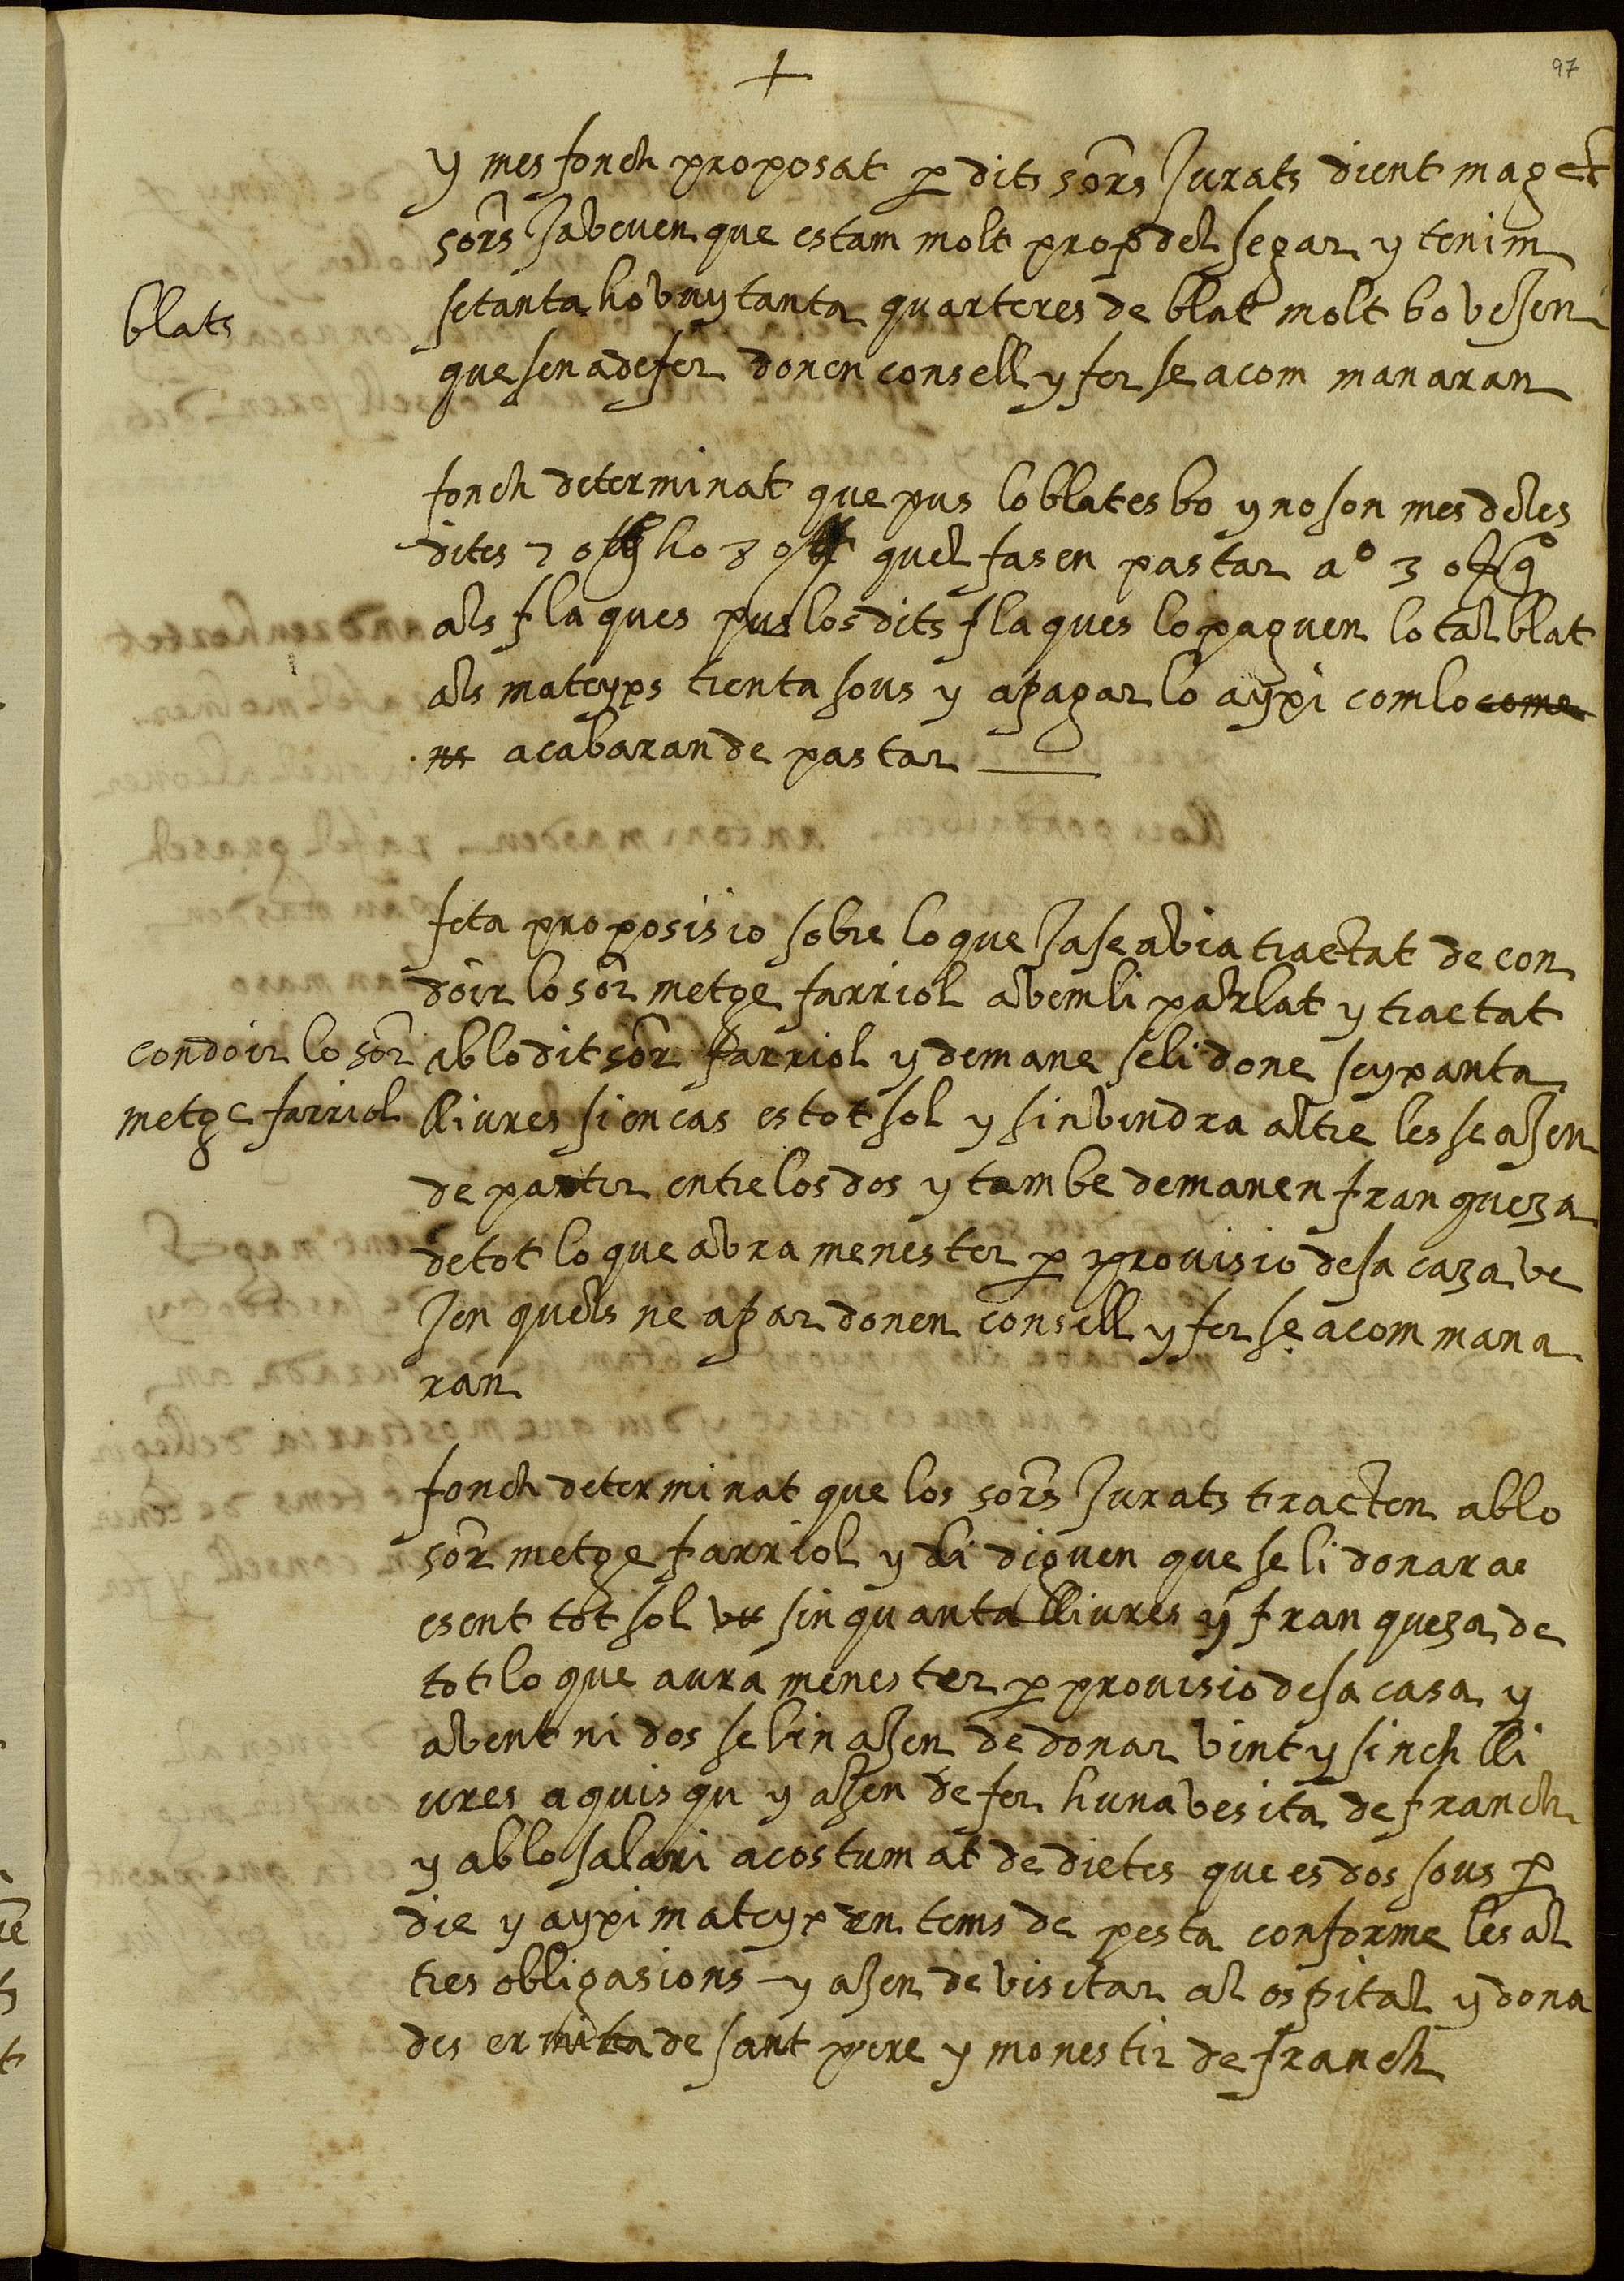 97
y mes fonch proposat p dits sors Jurats dient magchs
sors Ja veuen que estam molt prop del segar y tenim
blats
setanta ho vuytanta quarteres de blat molt bo veJen
que sen a de fer donen consell y fer se a com manaran
fonch determinat que pus lo blat es bo y no son mes de les
dites 70 ho 80 quel fasen pastar a° 30
als flaques pus los dits flaques lo paguen lo tal blat
als mateyxs trenta sous y a pagar lo ayxi com lo come
ns acabaran de pastar
feta proposisio sobre lo que Ja se avia tractat de con
doir lo sor metge farriol avem li parlat y tractat
condoir lo sor
metge farriol
ab lo dit sor farriol y demane se li done seyxanta
lliures si en cas es tot sol y sin vendra altre les se aJen
de partir entre los dos y tambe demanen franqueza
de tot lo que avra menester p provisio de sa caza ve
Jen quels ne apar donen consell y fer se a com mana
ran
fonch determinat que los sors Jurats tracten ab lo
sor metge farriol y li diguen que se li donara
esent tot sol sinquanta lliures y franqueza de
tot lo que aura menester p provisio de sa casa y
avent ni dos se lin aJen de donar vint y sinch lli
ures a quisqu y aJen de fer huna vesita de franch
y ab lo salari acostumat de dietes que es dos sous p
die y ayxi mateyx en tems de pesta conforme les al
tres obligasions y aJen de visitar al ospital y dona
des ermita de sant pere y monestir de franch